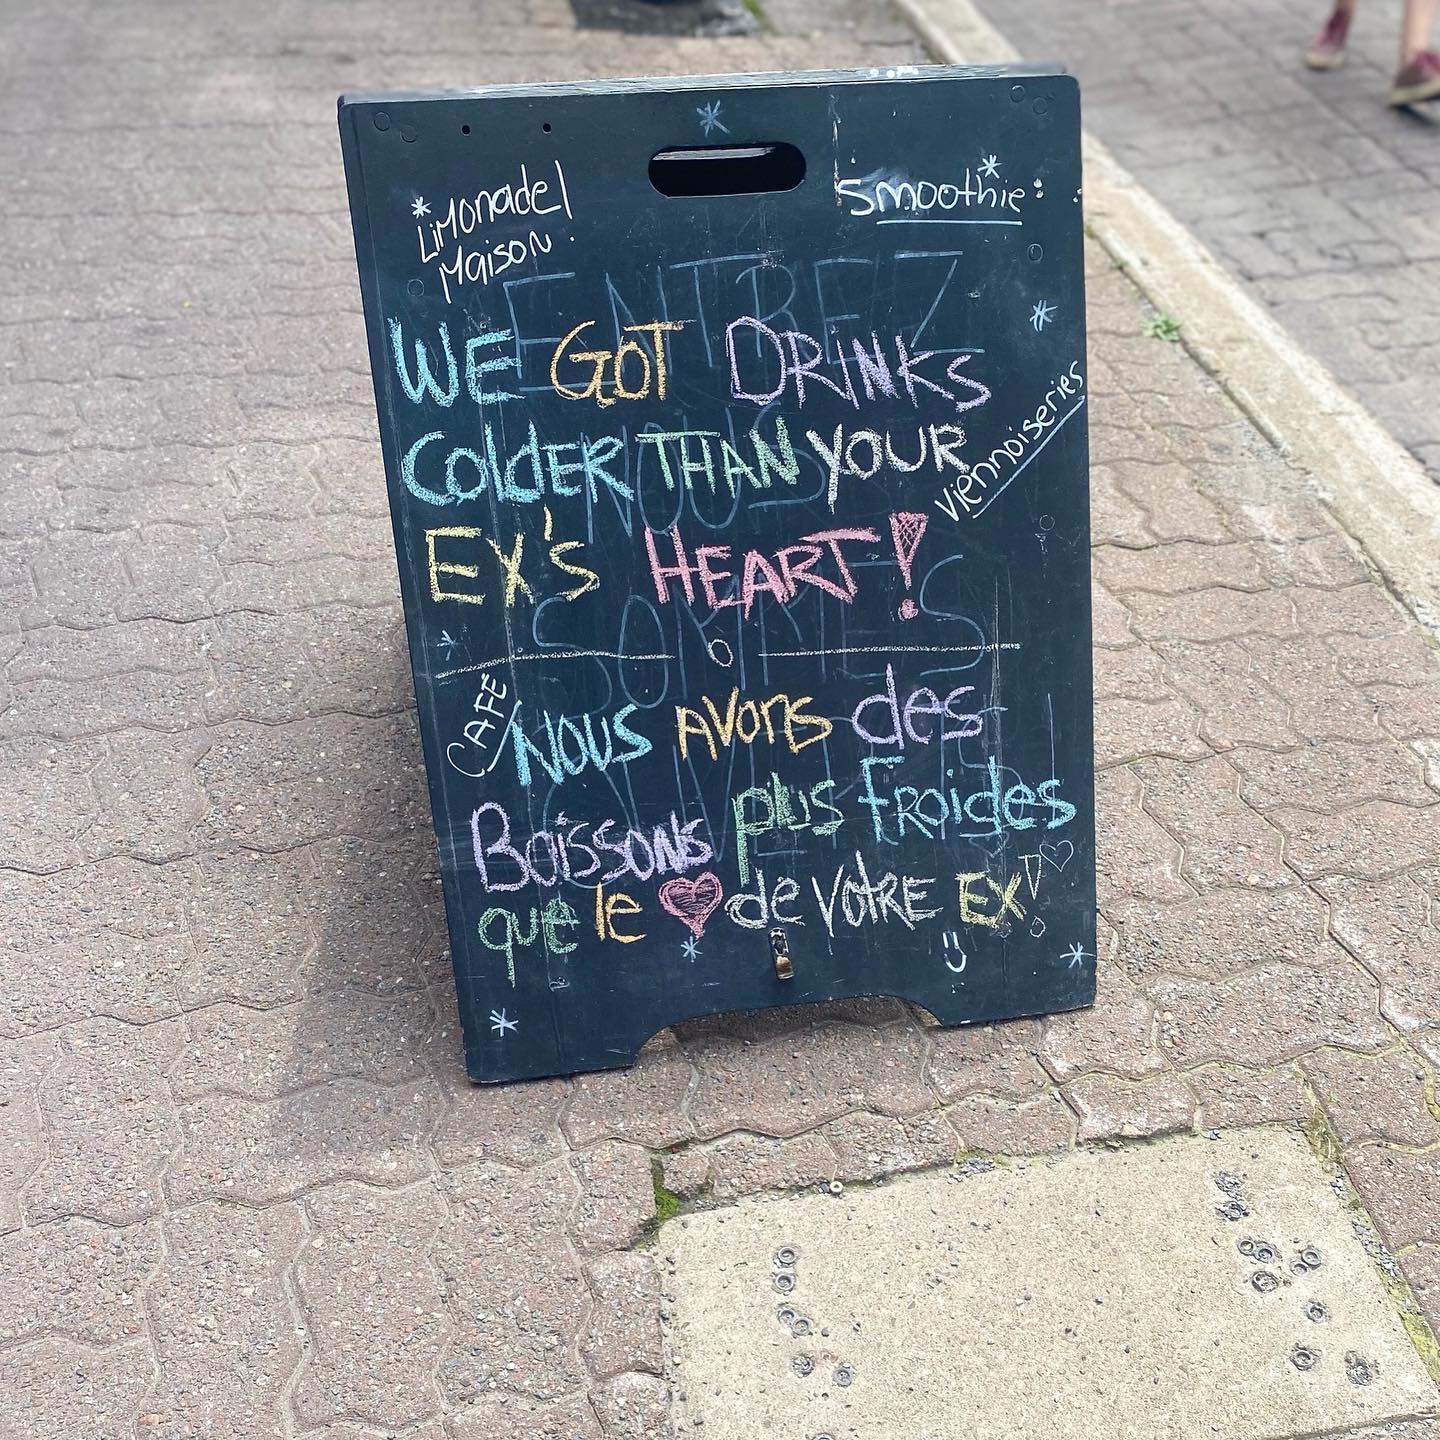 Limonade!
Maison.
Smoothie
WE GOT DRINKS
COLDER THAN YOUR
Viennoiseries
EX'S HEART!
CAFÉ
NOUS AVONS des
Boissons plus FROIDES
que le ♥ de VOTRE EX!
ENTREZ
NOUS
SOMMES